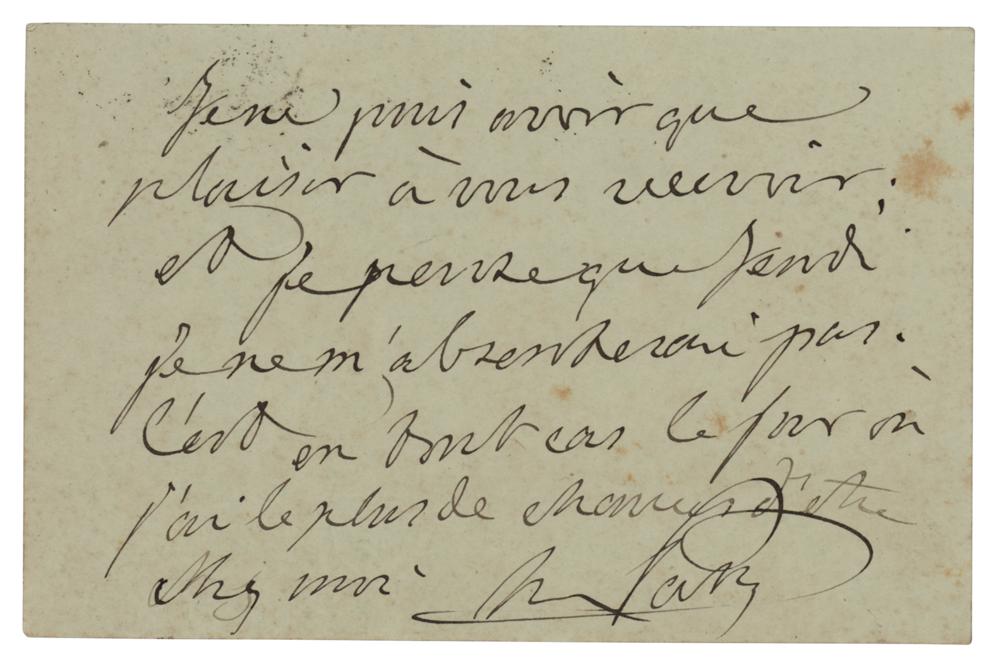 Je ne puis avoir que
plaisir à vous recevoir.
et je pense que Jeudi
je ne m'absenterai pas.
C'est en tout cas le jour où
j'ai le plus de chances d'être
chez moi